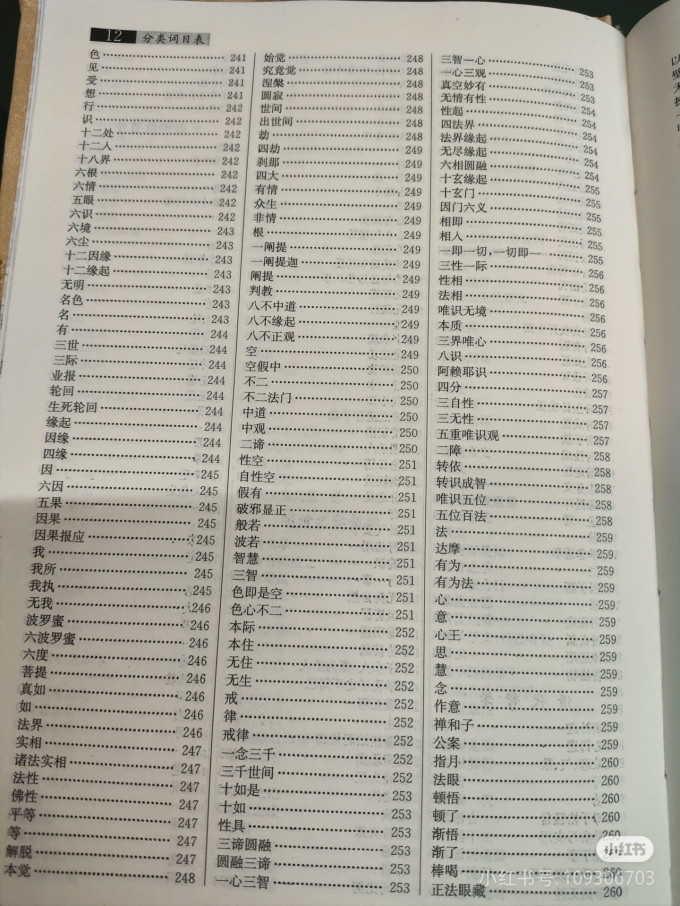 12 分类词目表
色 241
见 241
受 241
想 241
行 242
识 242
十二处 242
十二入 242
十八界 242
六根 242
六情 242
五眼 242
六识 242
六境 243
六尘 243
十二因缘 243
十二缘起 243
无明 243
名色 243
名 243
有 244
三世 244
三际 244
业报 244
轮回 244
生死轮回 244
缘起 244
因缘 244
四缘 244
因 245
六因 245
五果 245
因果 245
因果报应 245
我 245
我所 245
我执 245
无我 246
波罗蜜 246
六波罗蜜 246
六度 246
菩提 246
真如 246
如 246
法界 246
实相 247
诸法实相 247
法性 247
佛性 247
平等 247
等 247
解脱 247
本觉 248
始觉 248
究竟觉 248
涅槃 248
圆寂 248
世间 248
出世间 248
劫 248
四劫 249
刹那 249
四大 249
有情 249
众生 249
非情 249
根 249
一阐提 249
一阐提迦 249
阐提 249
判教 249
八不中道 249
八不缘起 249
八不正观 249
空 249
空假中 250
不二 250
不二法门 250
中道 250
中观 250
二谛 250
性空 251
自性空 251
假有 251
破邪显正 251
般若 251
波若 251
智慧 251
三智 251
色即是空 251
色心不二 251
本际 252
本住 252
无住 252
无生 252
戒 252
律 252
戒律 252
一念三千 252
三千世间 252
十如是 253
十如 253
性具 253
三谛圆融 253
圆融三谛 253
一心三智 253
三智一心 253
一心三观 253
真空妙有 253
无情有性 254
性起 254
四法界 254
法界缘起 254
无尽缘起 254
六相圆融 254
十玄缘起 255
十玄门 255
因门六义 255
相即 255
相入 255
一即一切，一切即一 255
三性一际 256
性相 256
法相 256
唯识无境 256
本质 256
三界唯心 256
八识 256
阿赖耶识 256
四分 257
三自性 257
三无性 257
五重唯识观 257
二障 258
转依 258
转识成智 258
唯识五位 258
五位百法 258
法 259
达摩 259
有为 259
有为法 259
心 259
意 259
心王 259
思 259
慧 259
念 259
作意 259
禅和子 259
公案 259
指月 260
法眼 260
顿悟 260
顿了 260
渐悟 260
渐了
棒喝 260
正法眼藏 260
小红书
小红书号: 109306703